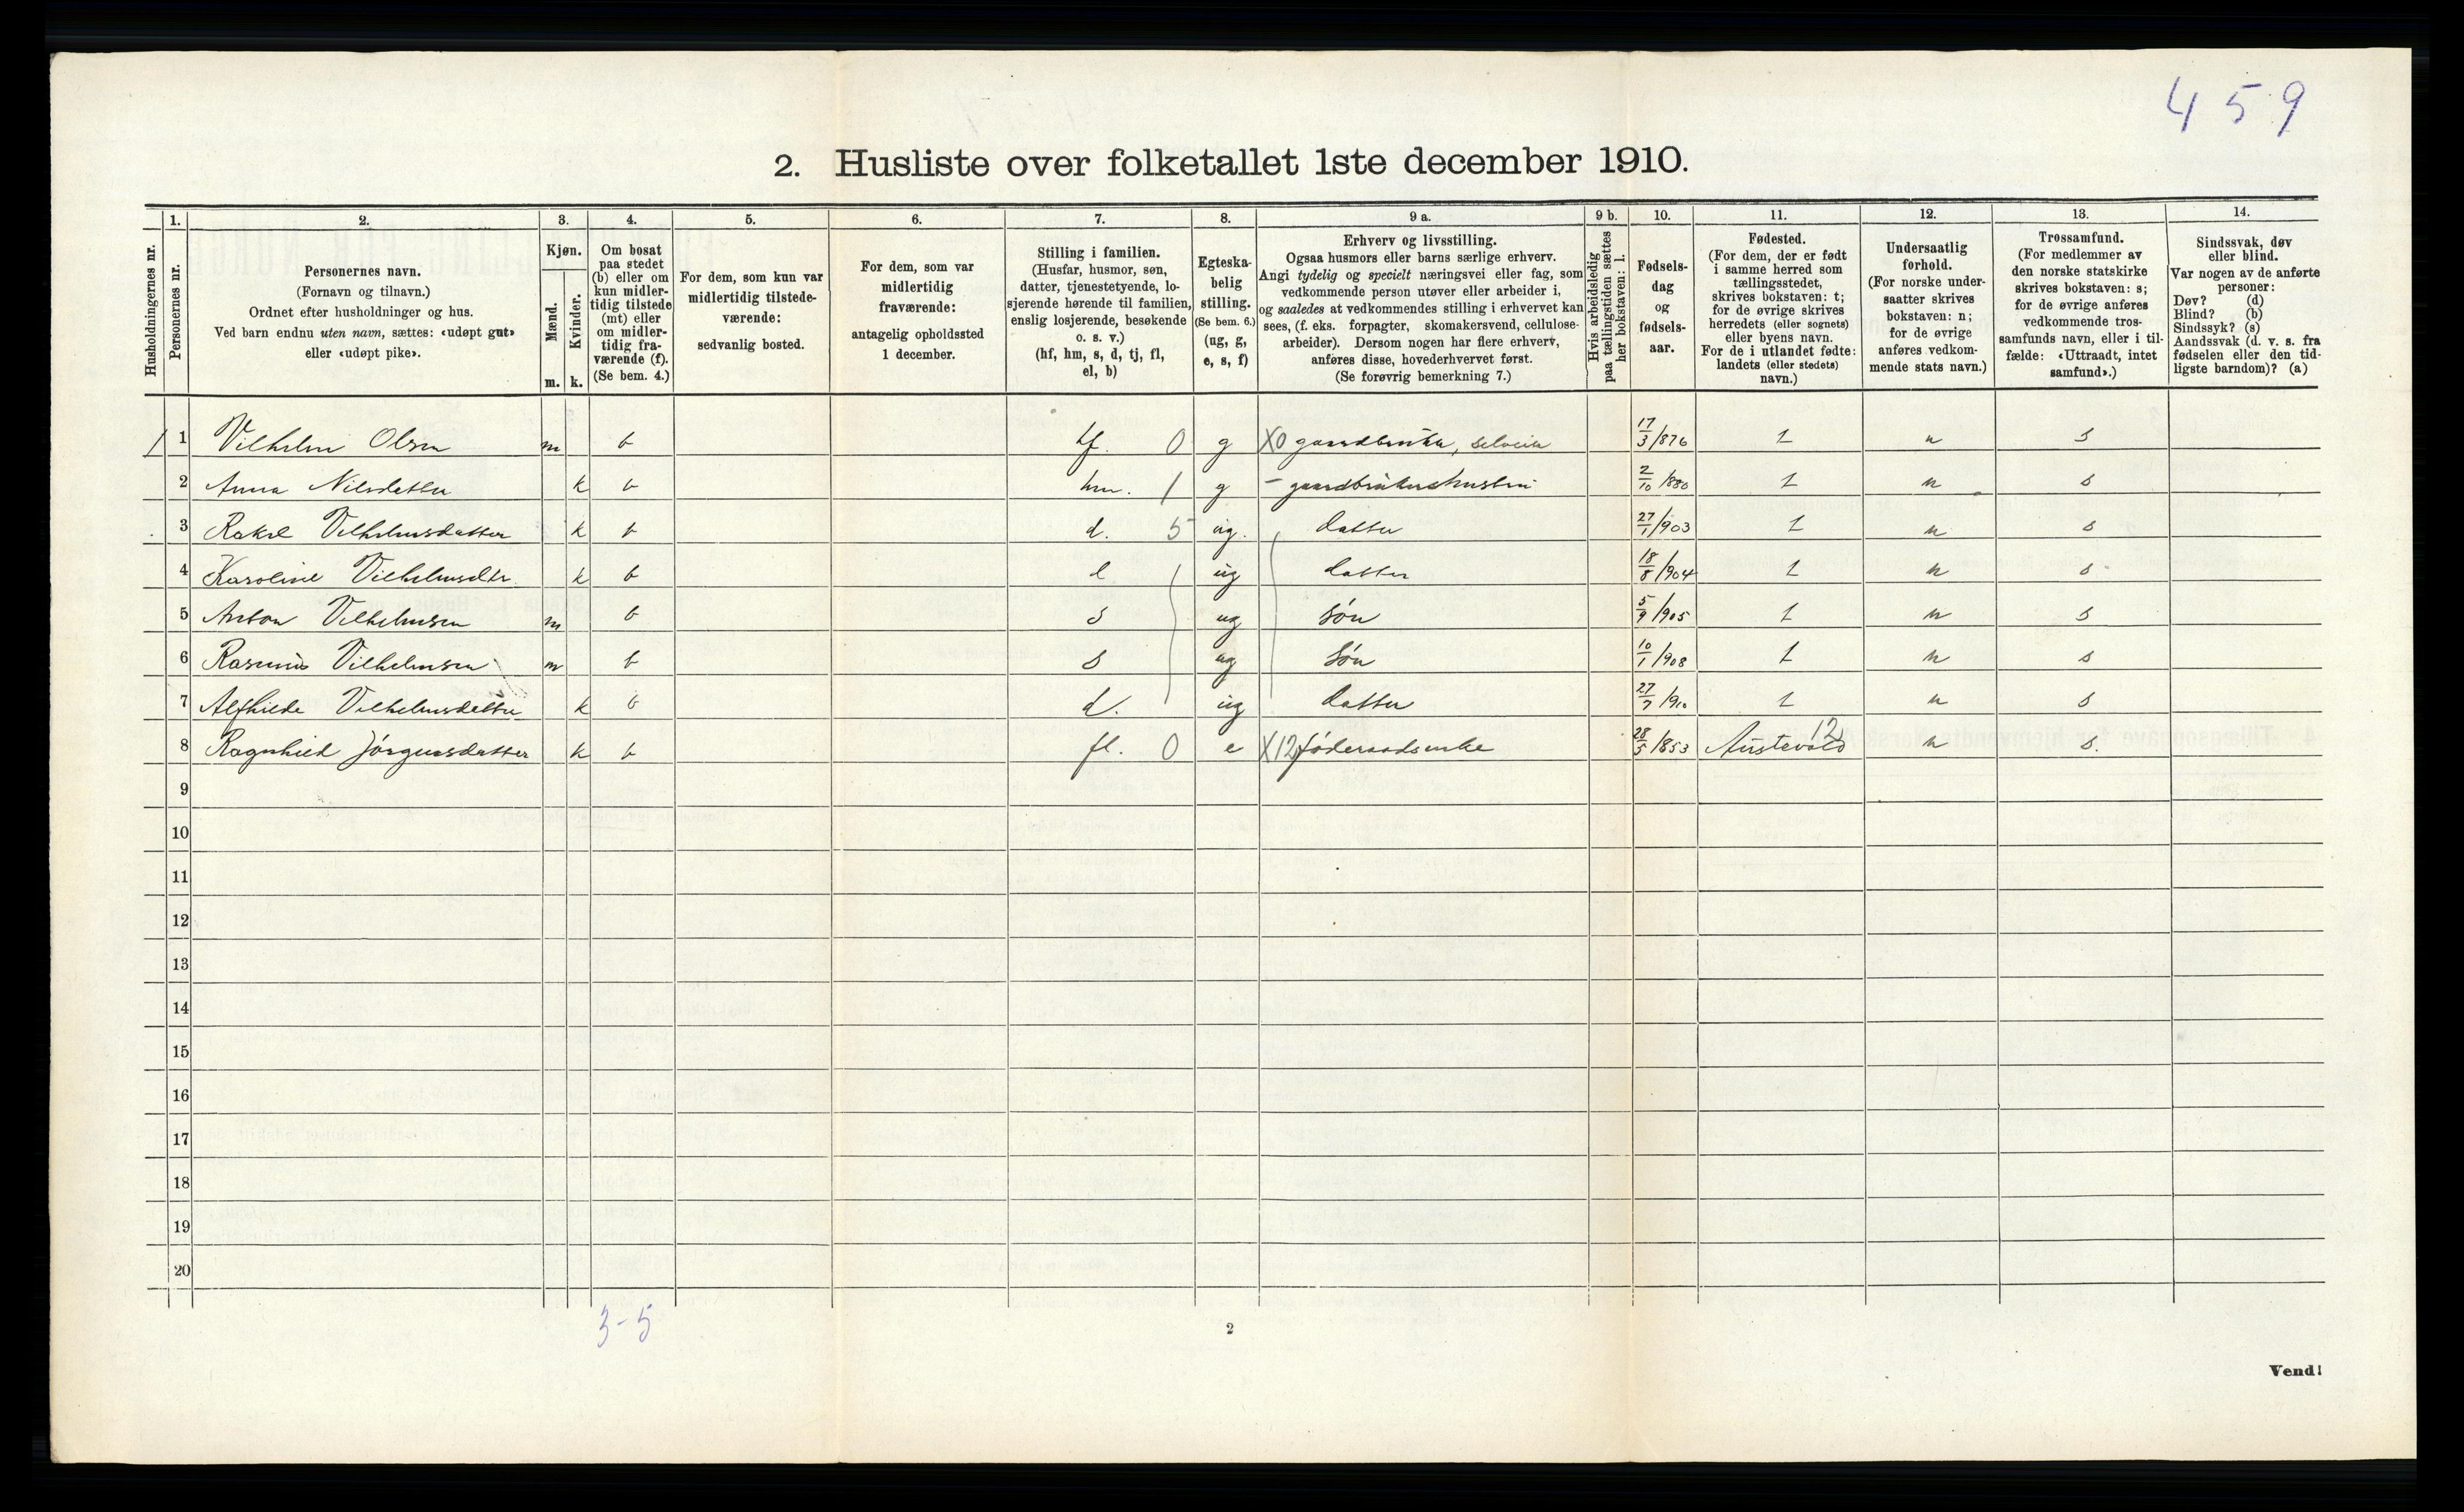 459
2. Husliste over folketallet 1ste december 1910.
Husholdningernes nr.
1.
Personernes nr.
2.
Personernes navn.
(Fornavn og tilnavn.)
Ordnet efter husholdninger og hus.
Ved barn endnu uten navn, sættes: «udøpt gut»
eller «udøpt pike».
3.
Kjøn.
Mænd.
Kvinder.
m. k.
4.
Om bosat
paa stedet
(b) eller om
kun midler-
tidig tilstede
(mt) eller
om midler-
tidig fra-
værende (f).
(Se bem. 4.)
5.
For dem, som kun var
midlertidig tilstede-
værende:
sedvanlig bosted.
6.
For dem, som var
midlertidig
fraværende:
antagelig opholdssted
1 december.
7.
Stilling i familien.
(Husfar, husmor, søn,
datter, tjenestetyende, lo-
sjerende hørende til familien,
enslig losjerende, besøkende
o. s. v.)
(hf, hm, s, d, tj, fl,
el, b)
8.
Egteska-
belig
stilling.
(Se bem. 6.)
(ug, g,
e, s, f)
9 a.
Erhverv og livsstilling.
Ogsaa husmors eller barns særlige erhverv.
Angi tydelig og specielt næringsvei eller fag, som
vedkommende person utøver eller arbeider i,
og saaledes at vedkommendes stilling i erhvervet kan
sees, (f. eks. forpagter, skomakersvend, cellulose-
arbeider). Dersom nogen har flere erhverv,
anføres disse, hovederhvervet først.
(Se forøvrig bemerkning 7.)
9 b.
Hvis arbeidsledig
paa tællingstiden sættes
her bokstaven: l.
10.
Fødsels-
dag
og
fødsels-
aar.
11.
Fødested.
(For dem, der er født
i samme herred som
tællingsstedet,
skrives bokstaven: t;
for de øvrige skrives
herredets (eller sognets)
eller byens navn.
For de i utlandet fødte:
landets (eller stedets)
navn.)
12.
Undersaatlig
forhold.
(For norske under-
saatter skrives
bokstaven: n;
for de øvrige
anføres vedkom-
mende stats navn.)
13.
Trossamfund.
(For medlemmer av
den norske statskirke
skrives bokstaven: s;
for de øvrige anføres
vedkommende tros-
samfunds navn, eller i til-
fælde: «Uttraadt, intet
samfund».)
14.
Sindssvak, døv
eller blind.
Var nogen av de anførte
personer:
Døv? (d)
Blind? (b)
Sindssyk? (s)
Aandssvak (d. v. s. fra
fødselen eller den tid-
ligste barndom)? (a)
1 1 Vilhelm Olsen m b hf. 0 g X0 gaardbruker, selveier 17/3/876 t n s
2 Anna Nilsdatter k b hm. 1 g - gaardbrukerhustru 2/10/880 t n s
3 Rakel Vilhelmsdatter k b d. 5 ug. datter 27/1/903 t n s
4 Karoline Vilhelmsdtr. k b d ug datter 18/8/904 t n s
5 Anton Vilhelmsen m b s ug søn 5/9/905 t n s
6 Rasmus Vilhelmsen m b s ug søn 10/1/908 t n s
7 Alfhilde Vilhelmsdatter k b d. ug datter 27/7/910 t n s
8 Ragnhild Jørgensdatter k b fl. 0 e X12 føderaadsenke 28/5/853 Austevold 12 n s.
9
10
11
12
13
14
15
16
17
18
19
20
3-5
2
Vend!